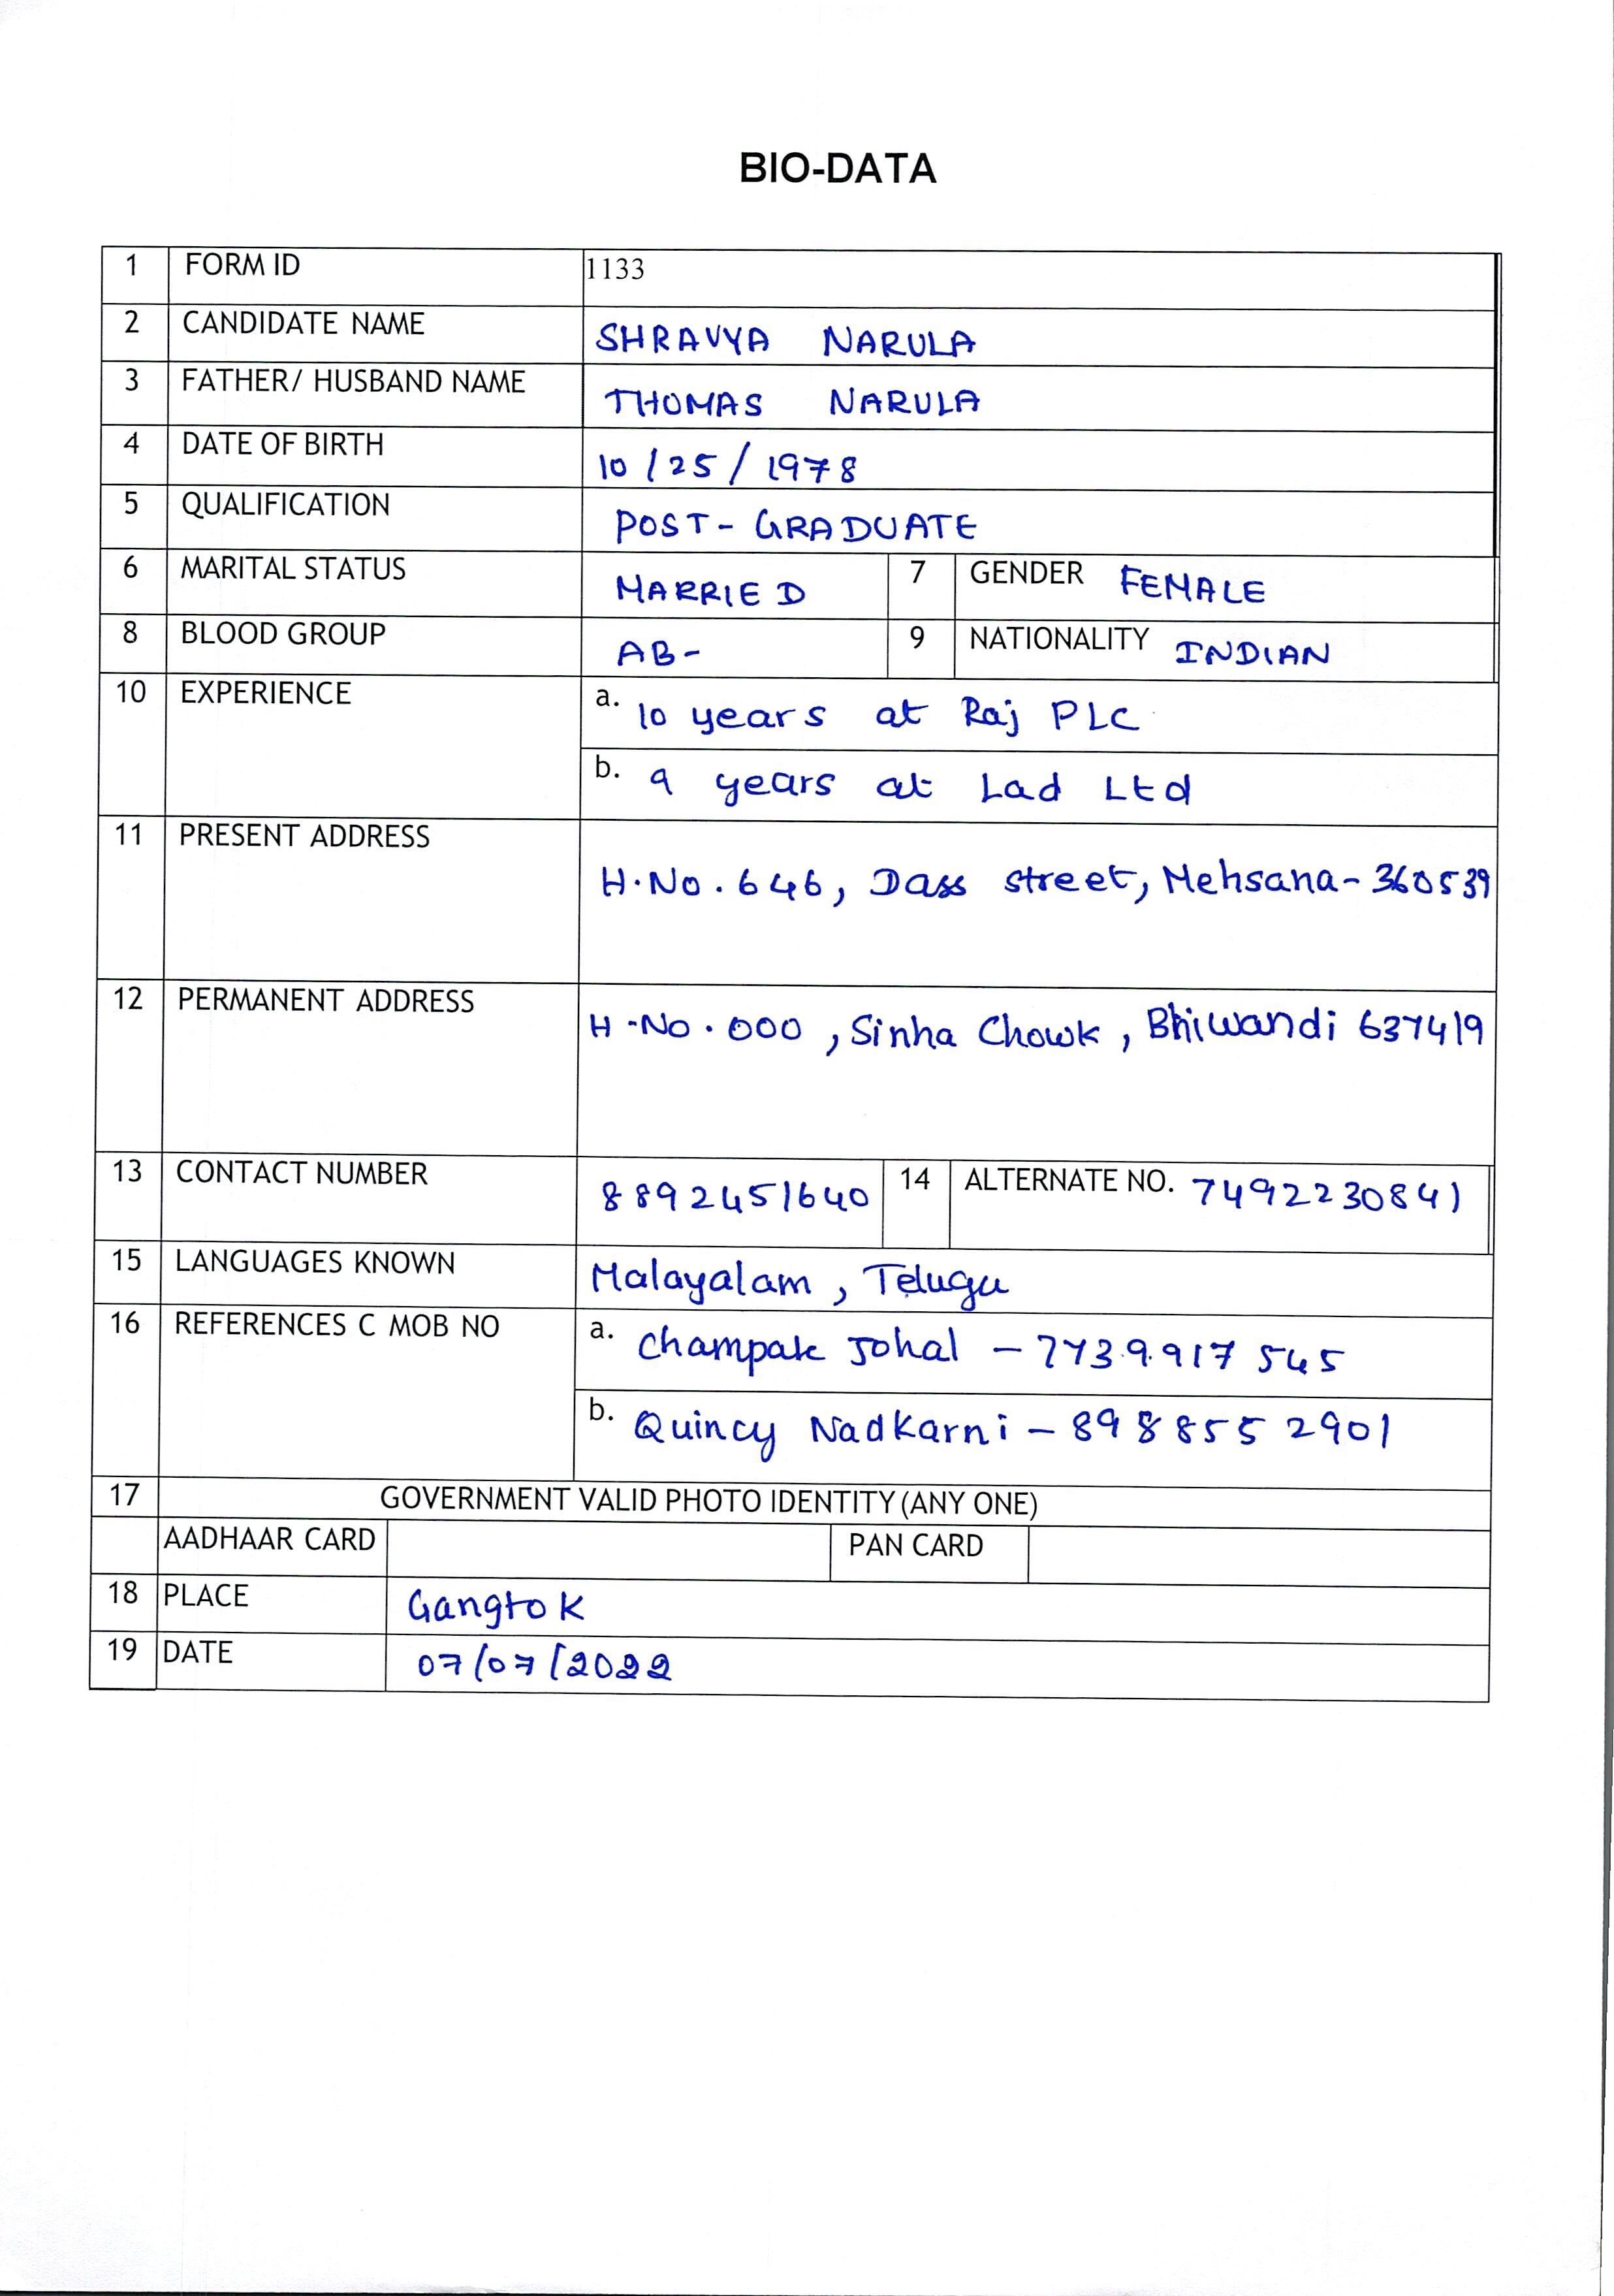 BIO-DATA
1 FORM ID 1133
2 CANDIDATE NAME SHRAVYA NARULA
3 FATHER/ HUSBAND NAME THOMAS NARULA
4 DATE OF BIRTH 10/25/1978
5 QUALIFICATION POST-GRADUATE
6 MARITAL STATUS MARRIED 7 GENDER FEMALE
8 BLOOD GROUP AB- 9 NATIONALITY INDIAN
10 EXPERIENCE a. 10 years at Raj PLC
b. 9 years at Lad Ltd
11 PRESENT ADDRESS
H.No.646, Dass street, Mehsana-360539
12 PERMANENT ADDRESS H.No.000, Sinha Chowk, Bhiwandi 637419
13 CONTACT NUMBER 8892451640 14 ALTERNATE NO. 7492230841
15 LANGUAGES KNOWN Malayalam, Telugu
16 REFERENCES C MOB NO a. Champak Johal - 7739917545
b. Quincy Nadkarni - 8988552901
17 GOVERNMENT VALID PHOTO IDENTITY (ANY ONE)
AADHAAR CARD PAN CARD
18 PLACE Gangtok
19 DATE 07/07/2022